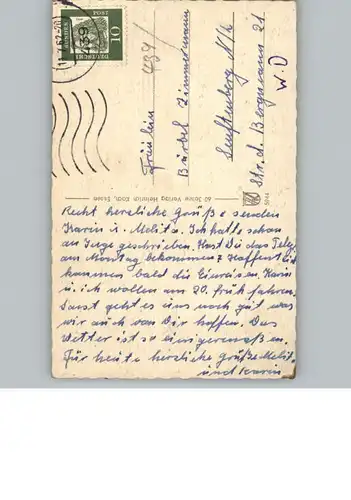 DEUTSCHE
BUNDES
POST
10
439
439/
Fräulein
Bärbel Zimmermann
Senftenberg N/L
Str. d. Bergmanns 21
W.D
60 Jahre Verlag Heinrich Koch, Essen
Recht herzliche Grüße senden
Karin u. Melita. Ich hatte schon
an geschrieben. Hast Du das Teleg.
am Montag bekommen? Hoffentlich
kommen bald die Einreisen. Karin
u. ich wollen am 20. früh fahren.
Sonst geht es uns noch gut was
wir auch von Dir hoffen. Das
Wetter ist so einigermaßen.
Für heute herzliche Grüße Melit.
und Karin